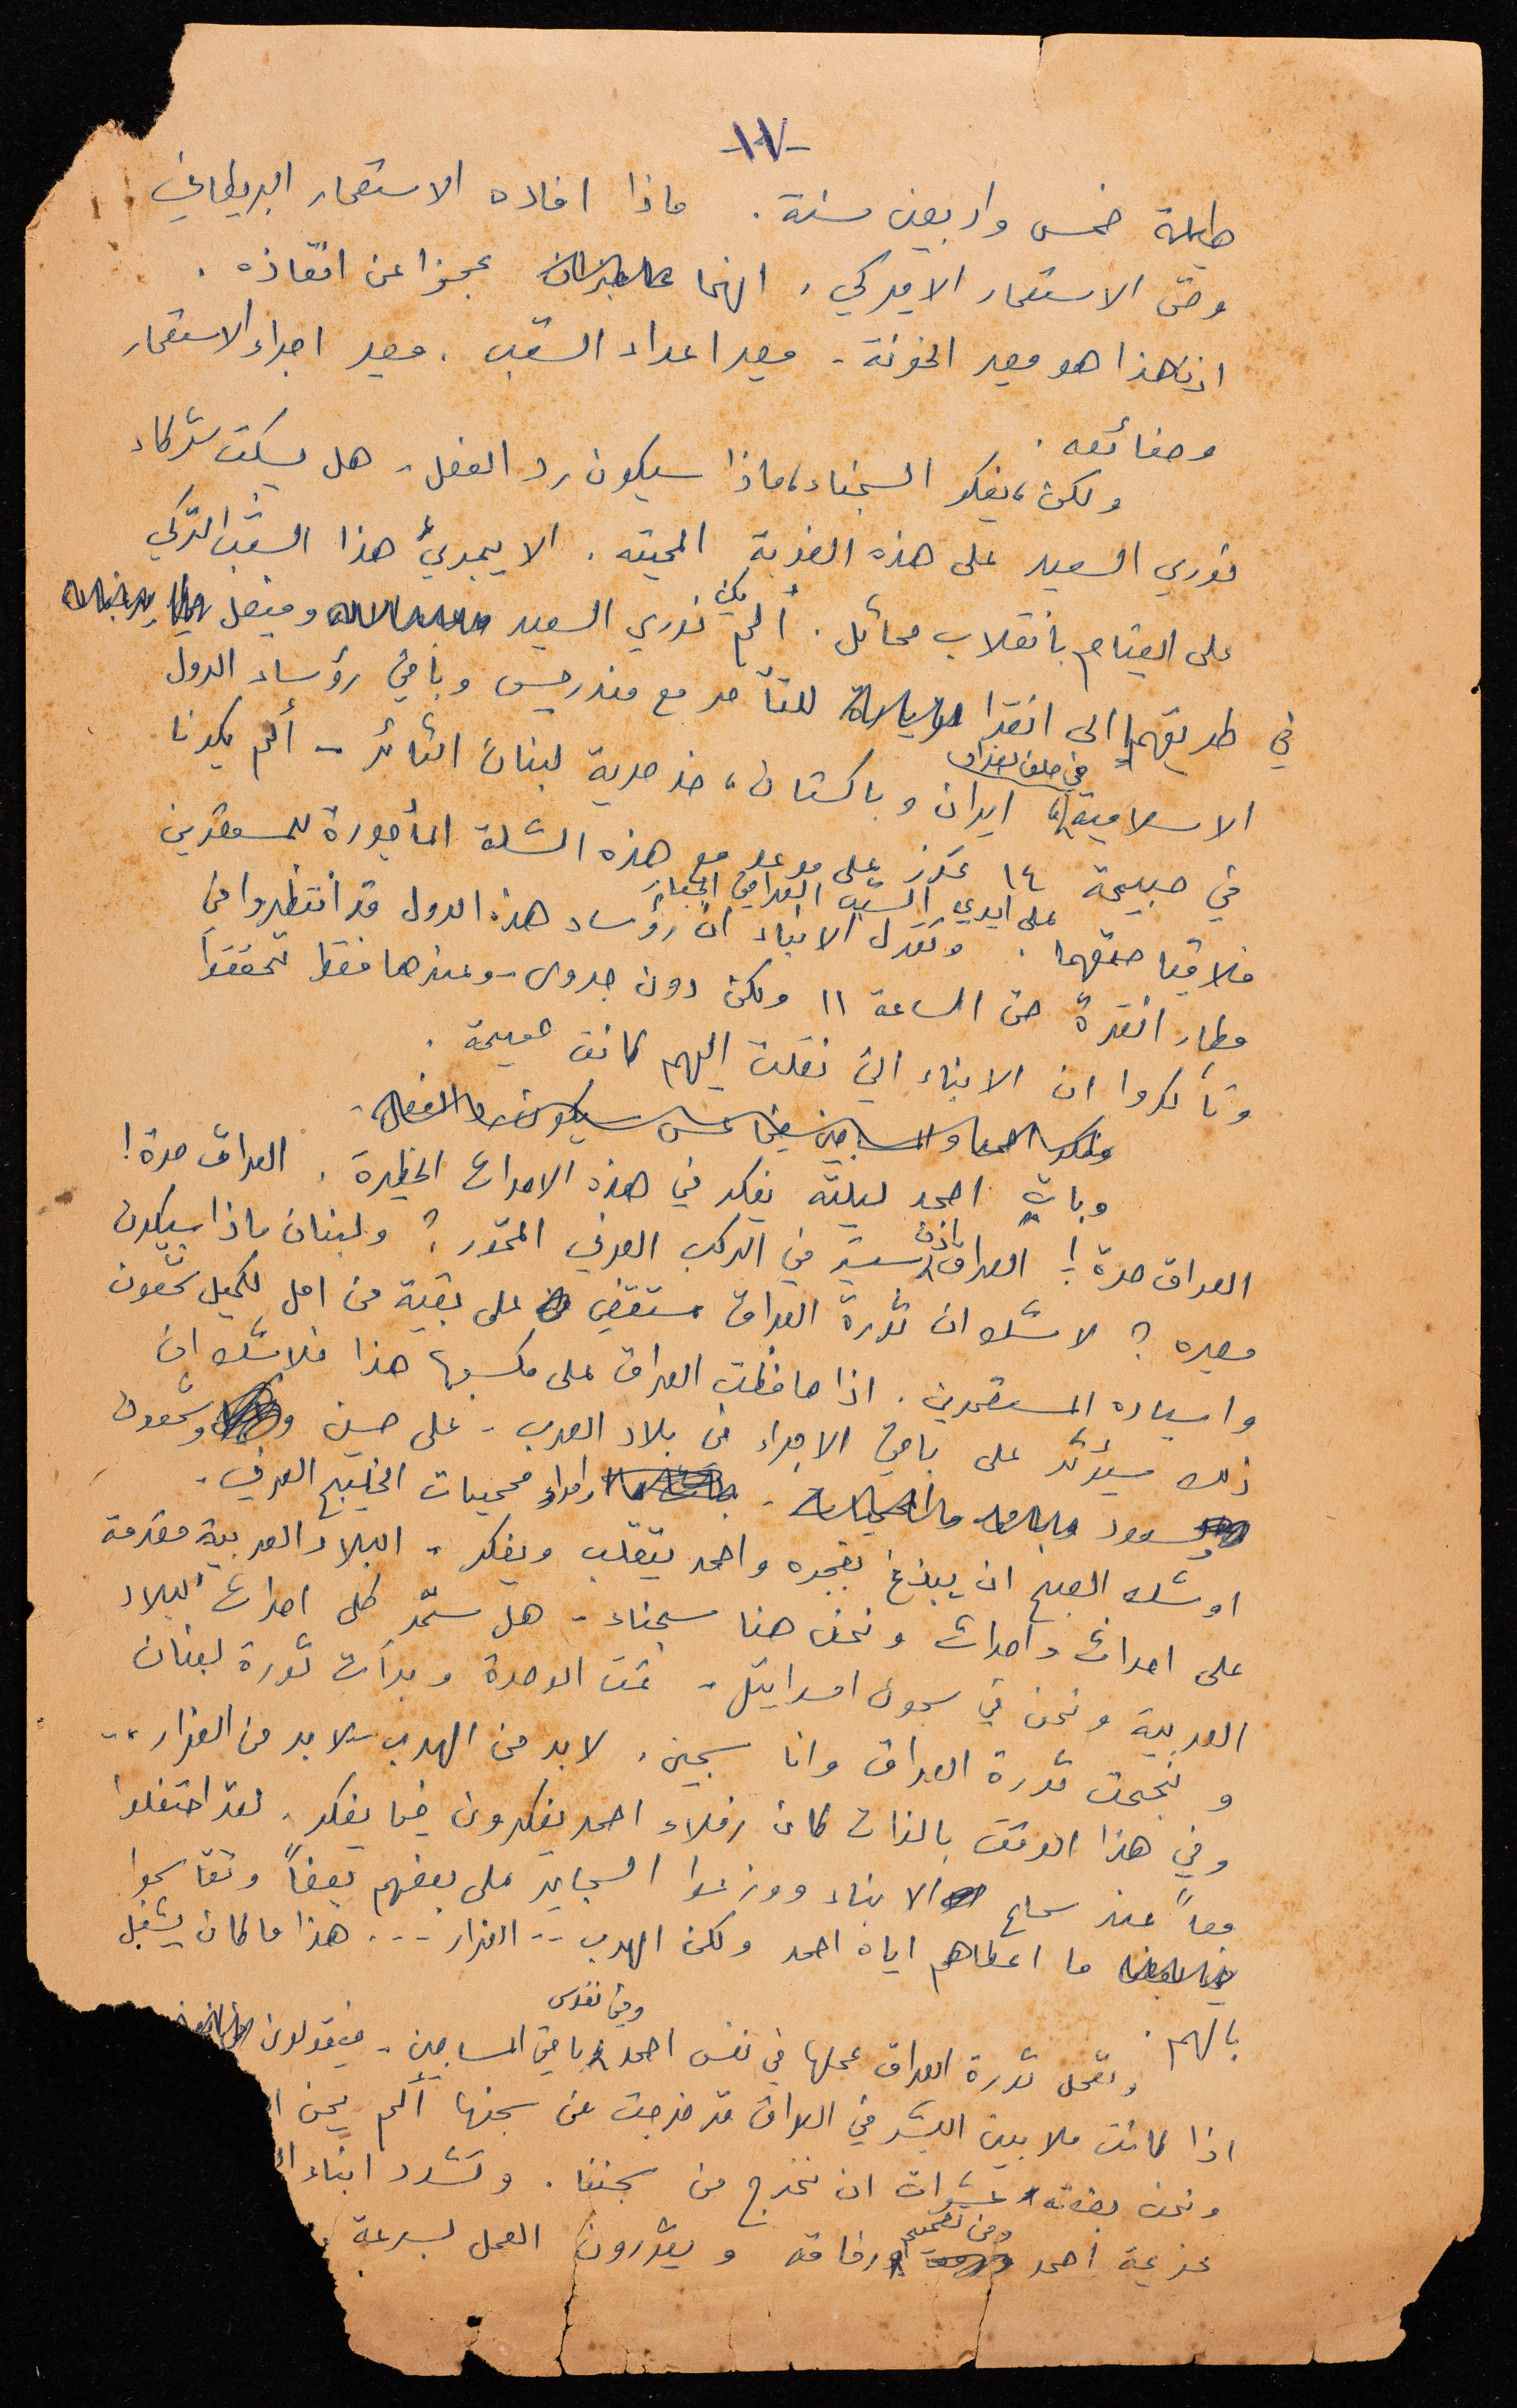 -١٧-
طيلة خمس واربعين سنة . ماذا افاده الاستعمار البريطاني
وحتى الاستعمار الاميركي . انهما عجزا عن انقاذه .
اذن هذا هو مصير الخونة - مصير اعداء الشعب . مصير اجراء الاستعمار
وصنائعه .
ولكن ، يفكر السجناء ، ماذا سيكون رد الفعل - هل يسكت شركاء
نوري السعيد على هذه الضربة المميته . الا يجرئ هذا الشعب التركي
على القيام بانقلاب مماثل . ألم يكن نوري السعيد وفيصل
في طريقهما الى انقرا للتآمر مع مندريس وباقي رؤساء الدول
الاسلامية في حلف بغداد ، ايران وباكستان ، ضد حرية لبنان الثائر - ألم يكونا
في صبيحة ١٤ تموز على موعد مع هذه الشلة المأجورة للمستعمرين
فلاقيا حتفهما على ايدي الشعب العراقي الجبار . وتقول الانباء ان رؤساء هذه الدول قد انتظروا في
مطار انقرة حتى الساعة ١١ ولكن دون جدوى - وعندها فقط تحققوا
وتأكدوا ان الانباء التي نقلت اليهم كانت صحيحة .
وبات احمد ليلته يفكر في هذه الاحداث الخطيرة . العراق حرة !
العراق حرة ! العراق اذن ستسير في الركب العربي المتحرر ؟ ولبنان ماذا سيكون
مصيره ؟ لا شك ان ثورة العراق ستقضي على بقية من امل لكميل شمعون
واسياده المستعمرين . اذا حافظت العراق على مكسبها هذا فلا شك ان
ذلك سيؤثر على باقي الاجراء في بلاد العرب - على حسين وشمعون
وسعود وامراء محميات الخليج العربي -
اوشك الصبح ان يبزغ بفجره واحمد يتقلب ويفكر - البلاد العربية مقدمة
على احداث واحداث ونحن هنا سجناء - هل ستمر كل احداث البلاد
العربية ونحن في سجون اسرائيل - تمت الوحدة وبدأت ثورة لبنان
ونجحت ثورة العراق وانا سجين . لا بد من الهرب - لا بد من الفرار . . -
وفي هذا الوقت بالذات كان زملاء احمد يفكرون فيما يفكر . لقد احتفلوا
معاً عند سماع الانباء ووزعوا السجاير على بعضهم بعضاً وتقاسموا
ما اعطاهم اياه احمد ولكن الهرب -- الفرار --- هذا ما كان يشغل
بالهم .
وتعمل ثورة العراق عملها في نفس احمد وفي نفوس باقي المساجين - فيقولون
اذا كانت ملايين البشر في العراق قد خرجت من سجنها ألم يحن
ونحن بضعة عشرات ان نخرج من سجننا . وتشدد انباء
عزيمة احمد ومن تصميم رفاقه ويقررون العمل بسرعة